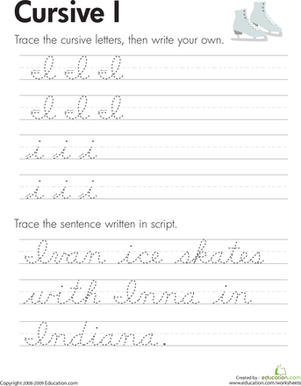 Cursive I
Trace the cursive letters, then write your own.
I I I
I I I
i i i
i i i
Trace the sentence written in script.
Ivan ice skates
with Inna in
Indiana.
Copyright 2008-2009 Education.com
Created by :
education.com
www.education.com/worksheets